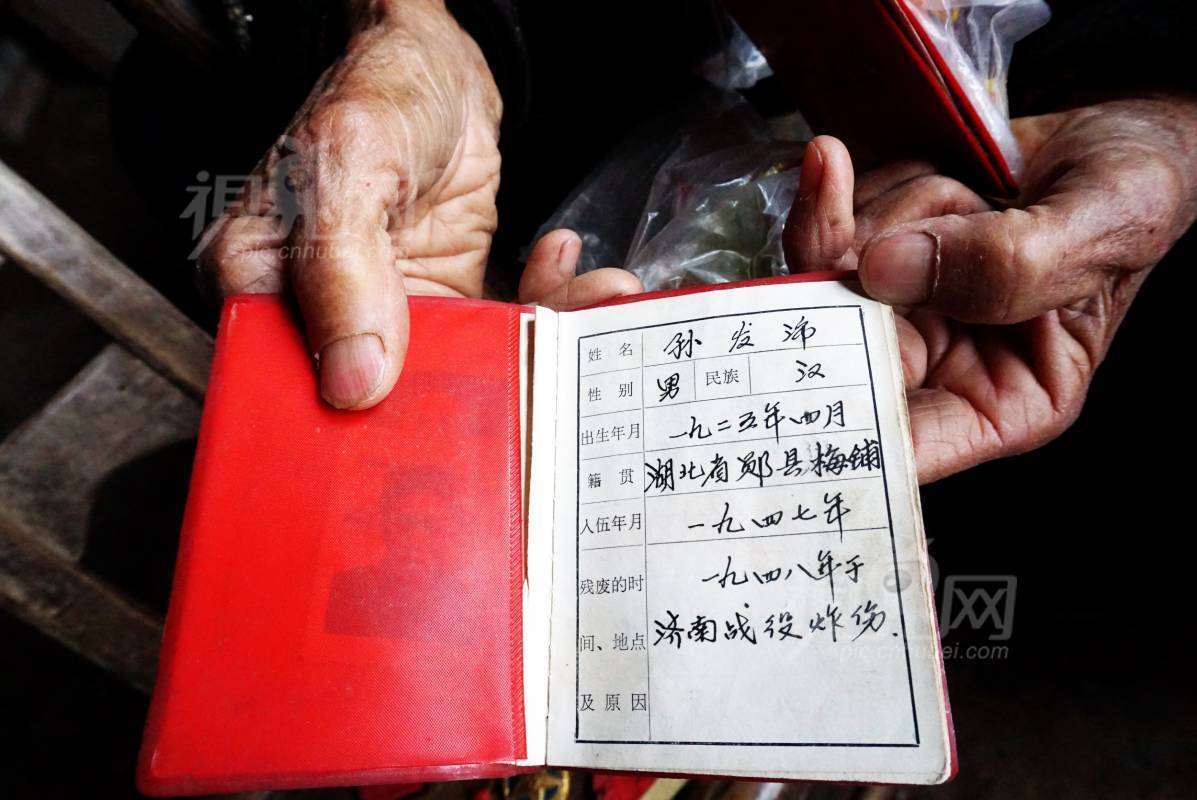 视界网
pic.cnhubei.com
姓 名 孙发沛
性 别 男 民族 汉
出生年月 一九二五年四月
籍 贯 湖北省郧县梅铺
入伍年月 一九四七年
残废的时 一九四八年于
间、地点 济南战役炸伤.
及原因
网
pic.cnhubei.com